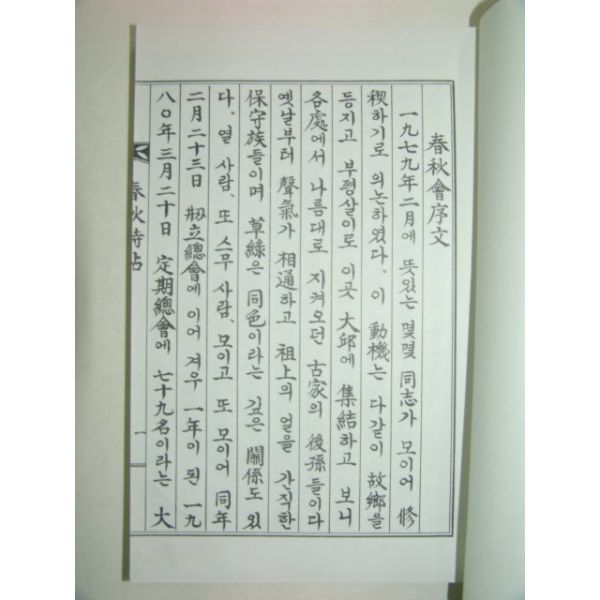 春秋會序文
一九七九年 二月에 뜻있는 몇몇 同志가 모이어 修
稧하기로 의논하였다. 이 動機는 다같이 故鄕을
등지고 부평살이로 이곳 大邱에 集結하고 보니
各處에서 나름대로 지켜오던 古家의 後孫들이다
옛날부터 聲氣가 相通하고 祖上의 얼을 간직한
保守族들이며 草綠은 同色이라는 깊은 關係도 있
다. 열 사람, 또 스무 사람, 모이고 또 모이어 同年
二月 二十三日 剏立總會에 이어 겨우 一年이 된 一九
八〇年 三月 二十日 定期總會에 七十九名이라는 大
春秋時帖
一